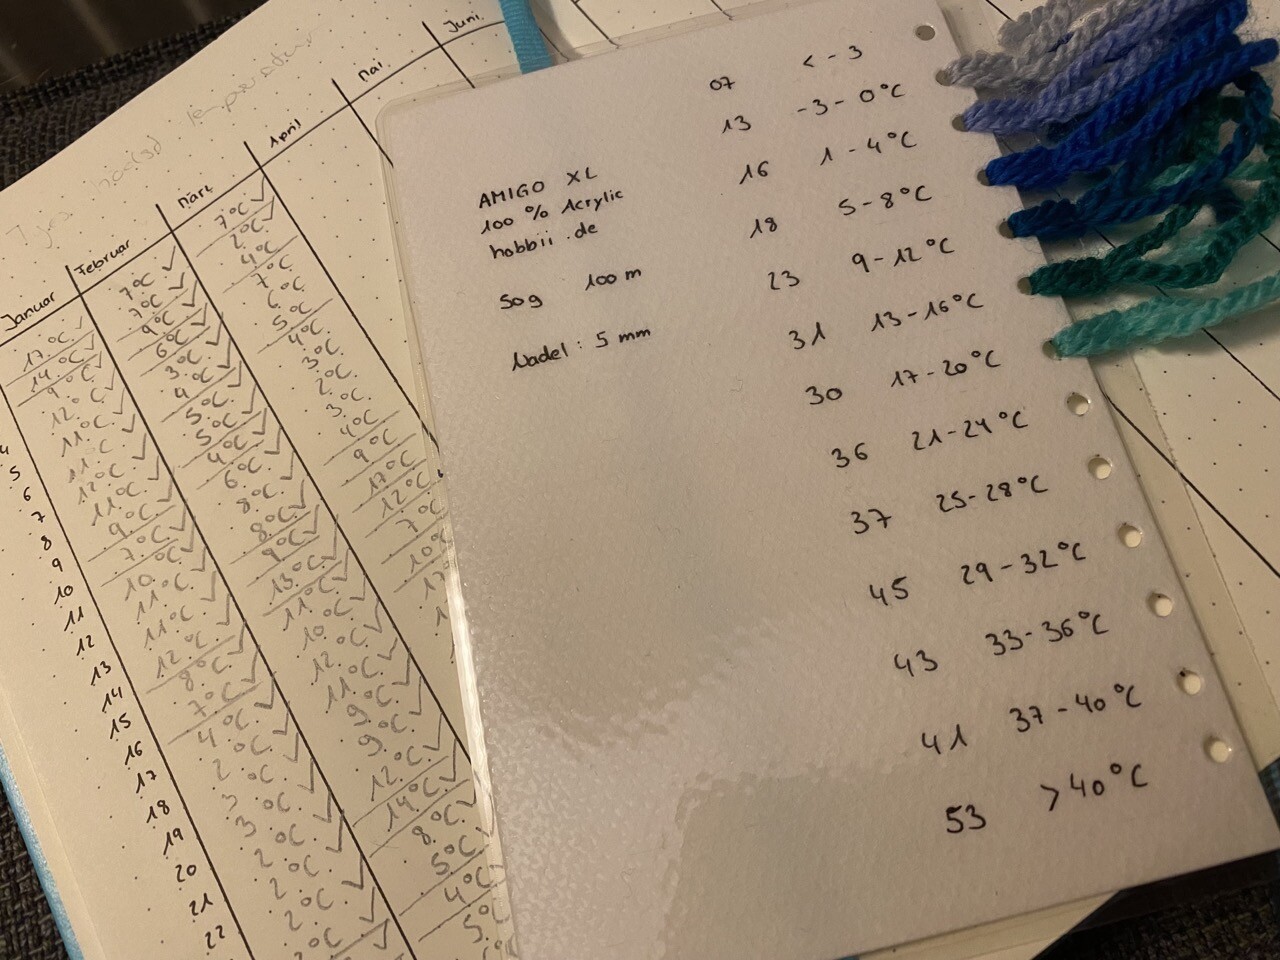 Januar
Februar
März
April
Mai
Juni
17°C
14°C
9°C
12°C
11°C
11°C
12°C
11°C
9°C
7°C
10°C
11°C
11°C
12°C
8°C
7°C
4°C
2°C
3°C
3°C
2°C
2°C
2°C
7°C
7°C
9°C
6°C
3°C
4°C
5°C
5°C
4°C
6°C
8°C
8°C
9°C
13°C
11°C
10°C
12°C
11°C
9°C
9°C
12°C
14°C
8°C
5°C
4°C
5°C
7°C
2°C
4°C
7°C
6°C
5°C
4°C
3°C
2°C
3°C
4°C
9°C
17°C
12°C
7°C
10°C
4
5
6
7
8
9
10
11
12
13
14
15
16
17
18
19
20
21
22
AMIGO XL
100 % Acrylic
hobbii.de
50g 100 m
Nadel : 5 mm
07 < -3
13 -3 - 0°C
16 1 - 4°C
18 5 - 8°C
23 9 - 12°C
31 13 - 16°C
30 17 - 20°C
36 21 - 24°C
37 25 - 28°C
45 29 - 32°C
43 33 - 36°C
41 37 - 40°C
53 > 40°C